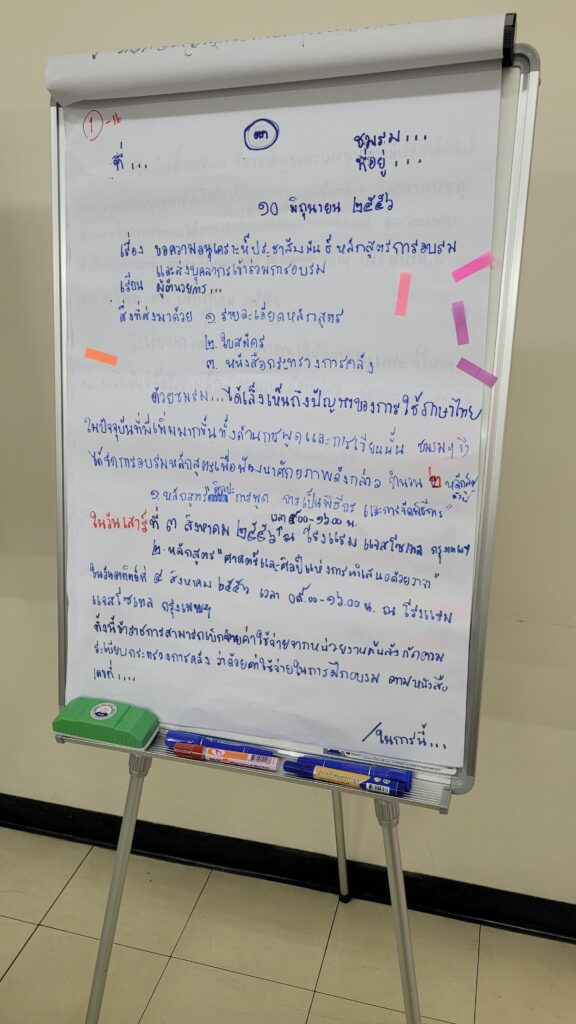 ①
ที่... ชมรม...
ที่อยู่...
๑๐ มิถุนายน ๒๕๕๖
เรื่อง ขอความอนุเคราะห์ประชาสัมพันธ์หลักสูตรการอบรม
และส่งบุคลากรเข้าร่วมการอบรม
เรียน ผู้อำนวยการ...
สิ่งที่ส่งมาด้วย ๑. รายละเอียดหลักสูตร
๒. ใบสมัคร
๓. หนังสือกระทรวงการคลัง
ด้วยชมรม...ได้เล็งเห็นถึงปัญหาของการใช้ภาษาไทย
ในปัจจุบันที่มีเพิ่มมากขึ้นทั้งด้านการพูดและการเขียนนั้น ชมรมฯ จึง
ได้จัดการอบรมหลักสูตรเพื่อพัฒนาศักยภาพดังกล่าว จำนวน ๒ หลักสูตร
ดังนี้
๑. หลักสูตร ศิลปะ การพูด การเป็นพิธีกร และการจัดพิธีการ"
เวลา ๙.๐๐-๑๖.๐๐ น.
ในวันเสาร์ที่ ๓ สิงหาคม ๒๕๕๖ ณ โรงแรม แจสโซเทล กรุงเทพฯ
๒. หลักสูตร "ศาสตร์และศิลป์แห่งการนำเสนอด้วยวาจา"
ในวันอาทิตย์ที่ ๔ สิงหาคม ๒๕๕๖ เวลา ๐๙.๐๐-๑๖.๐๐ น. ณ โรงแรม
แจสโซเทล กรุงเทพฯ
ทั้งนี้ข้าราชการสามารถเบิกจ่ายค่าใช้จ่ายจากหน่วยงานต้นสังกัดตาม
ระเบียบกระทรวงการคลัง ว่าด้วยค่าใช้จ่ายในการฝึกอบรม ตามหนังสือ
เลขที่....
/ในการนี้...